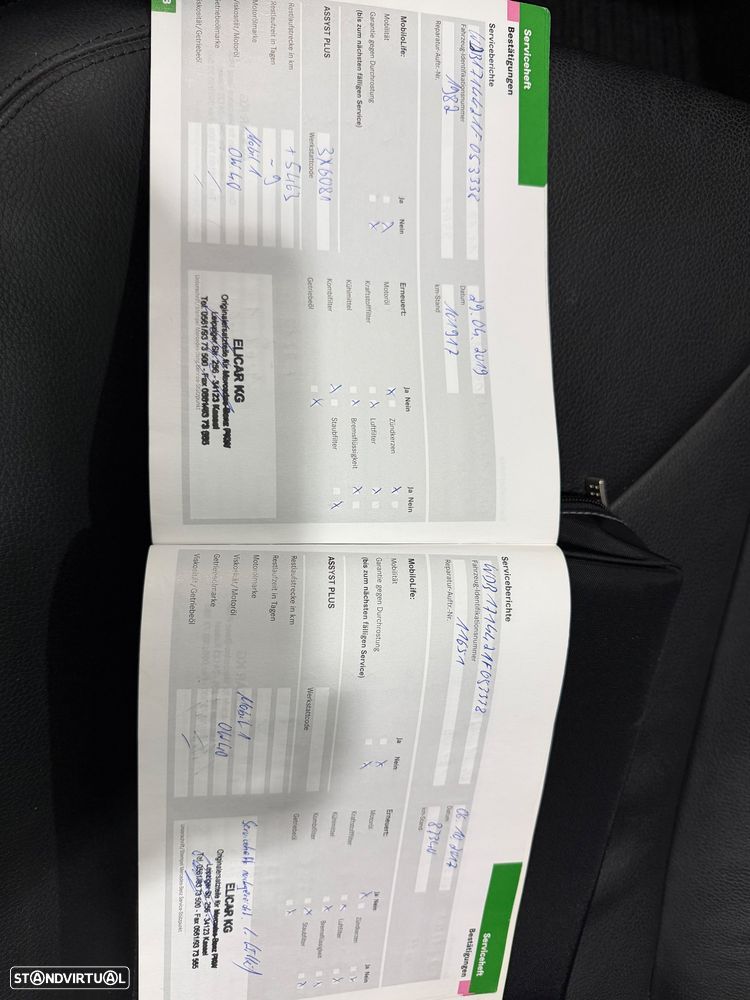 Serviceheft
Bestätigungen
Serviceberichte
Fahrzeug-Identifikationsnummer
Datum
29.04.2019
Reparatur-Auftr.-Nr.
1982
km-Stand
101917
MobiloLife:
Ja Nein
Mobilität
Garantie gegen Durchrostung
(bis zum nächsten fälligen Service)
Erneuert:
Ja Nein
Ja Nein
Motoröl
Zündkerzen
Kraftstofffilter
Luftfilter
Kühlmittel
Bremsflüssigkeit
Kombifilter
Staubfilter
Getriebeöl
ASSYST PLUS
Werkstattcode
3X6081
Restlaufstrecke in km
+5463
Restlaufzeit in Tagen
- 9
Motorölmarke
Mobil 1
Viskosität/Motoröl
0W40
Getriebeölmarke
Viskosität/Getriebeöl
ELICAR KG
Originalersatzteile für Mercedes-Benz PKW
Leipziger Str. 256 - 34123 Kassel
Tel. 0561/93 73 500 - Fax 0561/93 73 555
Serviceheft
Bestätigungen
Serviceberichte
Fahrzeug-Identifikationsnummer
Datum
06.10.2017
Reparatur-Auftr.-Nr.
11651
km-Stand
87340
MobiloLife:
Ja Nein
Mobilität
Garantie gegen Durchrostung
(bis zum nächsten fälligen Service)
Erneuert:
Ja Nein
Ja Nein
Motoröl
Zündkerzen
Kraftstofffilter
Luftfilter
Kühlmittel
Bremsflüssigkeit
Kombifilter
Staubfilter
Getriebeöl
ASSYST PLUS
Werkstattcode
Restlaufstrecke in km
Restlaufzeit in Tagen
Motorölmarke
Mobil 1
Viskosität/Motoröl
0W40
Getriebeölmarke
Viskosität/Getriebeöl
Serviceheft
ELICAR KG
Originalersatzteile für Mercedes-Benz PKW
Leipziger Str. 256 - 34123 Kassel
Tel. 0561/93 73 500 - Fax 0561/93 73 555
Unterschrift/Stempel Mercedes-Benz Service-Stützpunkt
STANDVIRTUAL